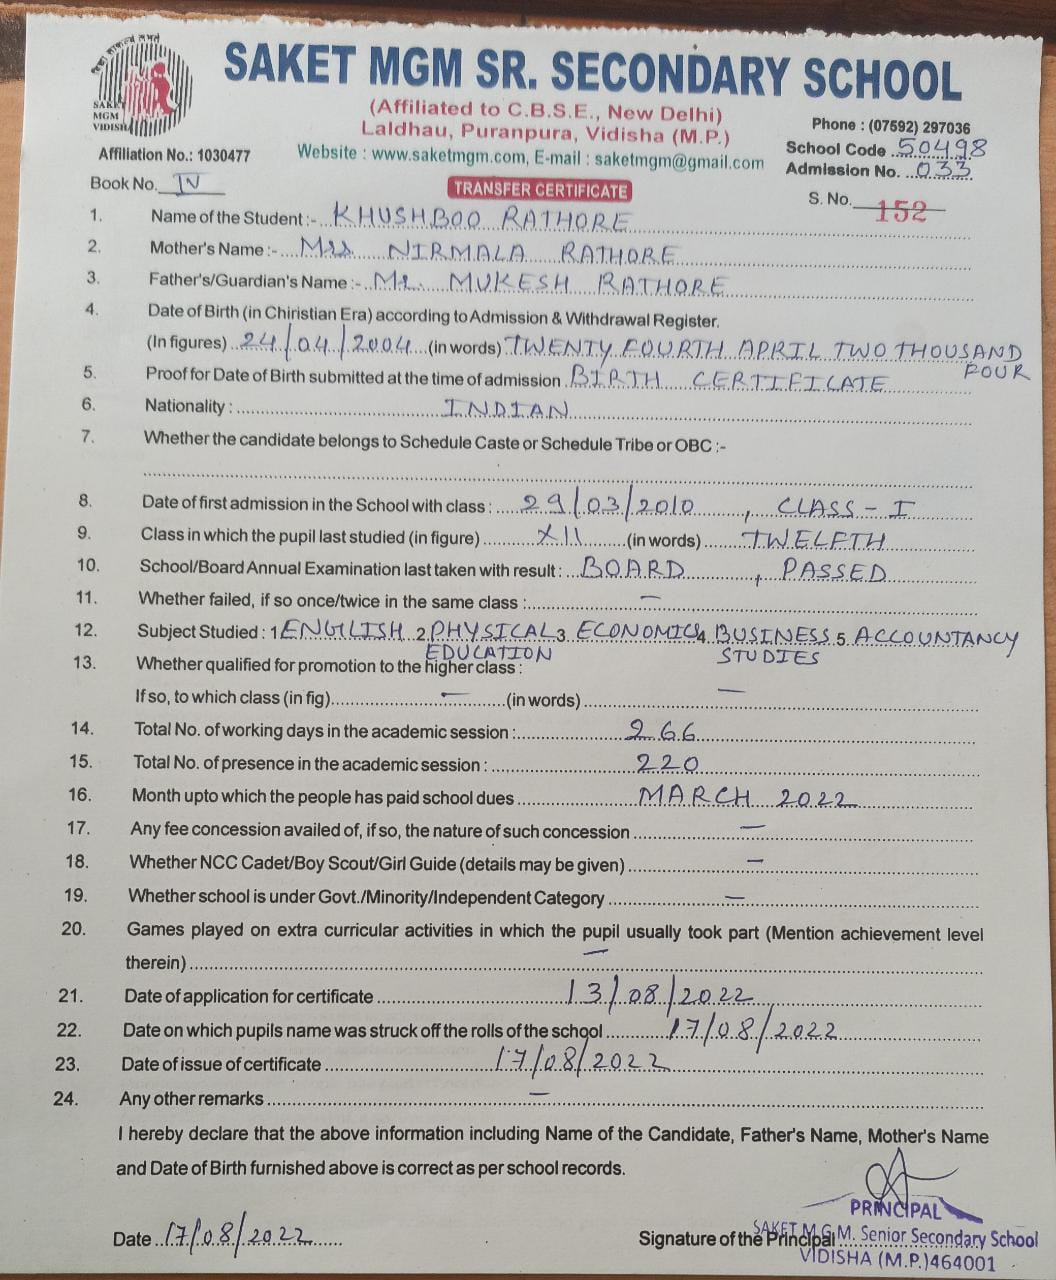 SAKET MGM SR. SECONDARY SCHOOL
SAKET
MGM
VIDISHA
(Affiliated to C.B.S.E., New Delhi)
Laldhau, Puranpura, Vidisha (M.P.)
Phone : (07592) 297036
Affiliation No.: 1030477
Website : www.saketmgm.com, E-mail : saketmgm@gmail.com
School Code 50498
Admission No. 033
Book No. IV
TRANSFER CERTIFICATE
S. No. 152
1. Name of the Student :- KHUSHBOO RATHORE
2. Mother's Name :- Mrs. NIRMALA RATHORE
3. Father's/Guardian's Name :- Mr. MUKESH RATHORE
4. Date of Birth (in Chiristian Era) according to Admission & Withdrawal Register.
(In figures) 24/04/2004 (in words) TWENTY FOURTH APRIL TWO THOUSAND
FOUR
5. Proof for Date of Birth submitted at the time of admission BIRTH CERTIFICATE
6. Nationality : INDIAN
7. Whether the candidate belongs to Schedule Caste or Schedule Tribe or OBC :-
8. Date of first admission in the School with class : 29/03/2010, CLASS - I
9. Class in which the pupil last studied (in figure) XII (in words) TWELFTH
10. School/Board Annual Examination last taken with result : BOARD, PASSED
11. Whether failed, if so once/twice in the same class : —
12. Subject Studied : 1 ENGLISH 2 PHYSICAL 3 ECONOMICS 4. BUSINESS 5. ACCOUNTANCY
EDUCATION STUDIES
13. Whether qualified for promotion to the higher class :
If so, to which class (in fig) — (in words) —
14. Total No. of working days in the academic session : 266
15. Total No. of presence in the academic session : 220
16. Month upto which the people has paid school dues MARCH 2022
17. Any fee concession availed of, if so, the nature of such concession —
18. Whether NCC Cadet/Boy Scout/Girl Guide (details may be given) —
19. Whether school is under Govt./Minority/Independent Category —
20. Games played on extra curricular activities in which the pupil usually took part (Mention achievement level
therein) —
21. Date of application for certificate 13/08/2022
22. Date on which pupils name was struck off the rolls of the school 17/08/2022
23. Date of issue of certificate 17/08/2022
24. Any other remarks —
I hereby declare that the above information including Name of the Candidate, Father's Name, Mother's Name
and Date of Birth furnished above is correct as per school records.
PRINCIPAL
Date 17/08/2022
Signature of the Principal
SAKET M.G.M. Senior Secondary School
VIDISHA (M.P.)464001